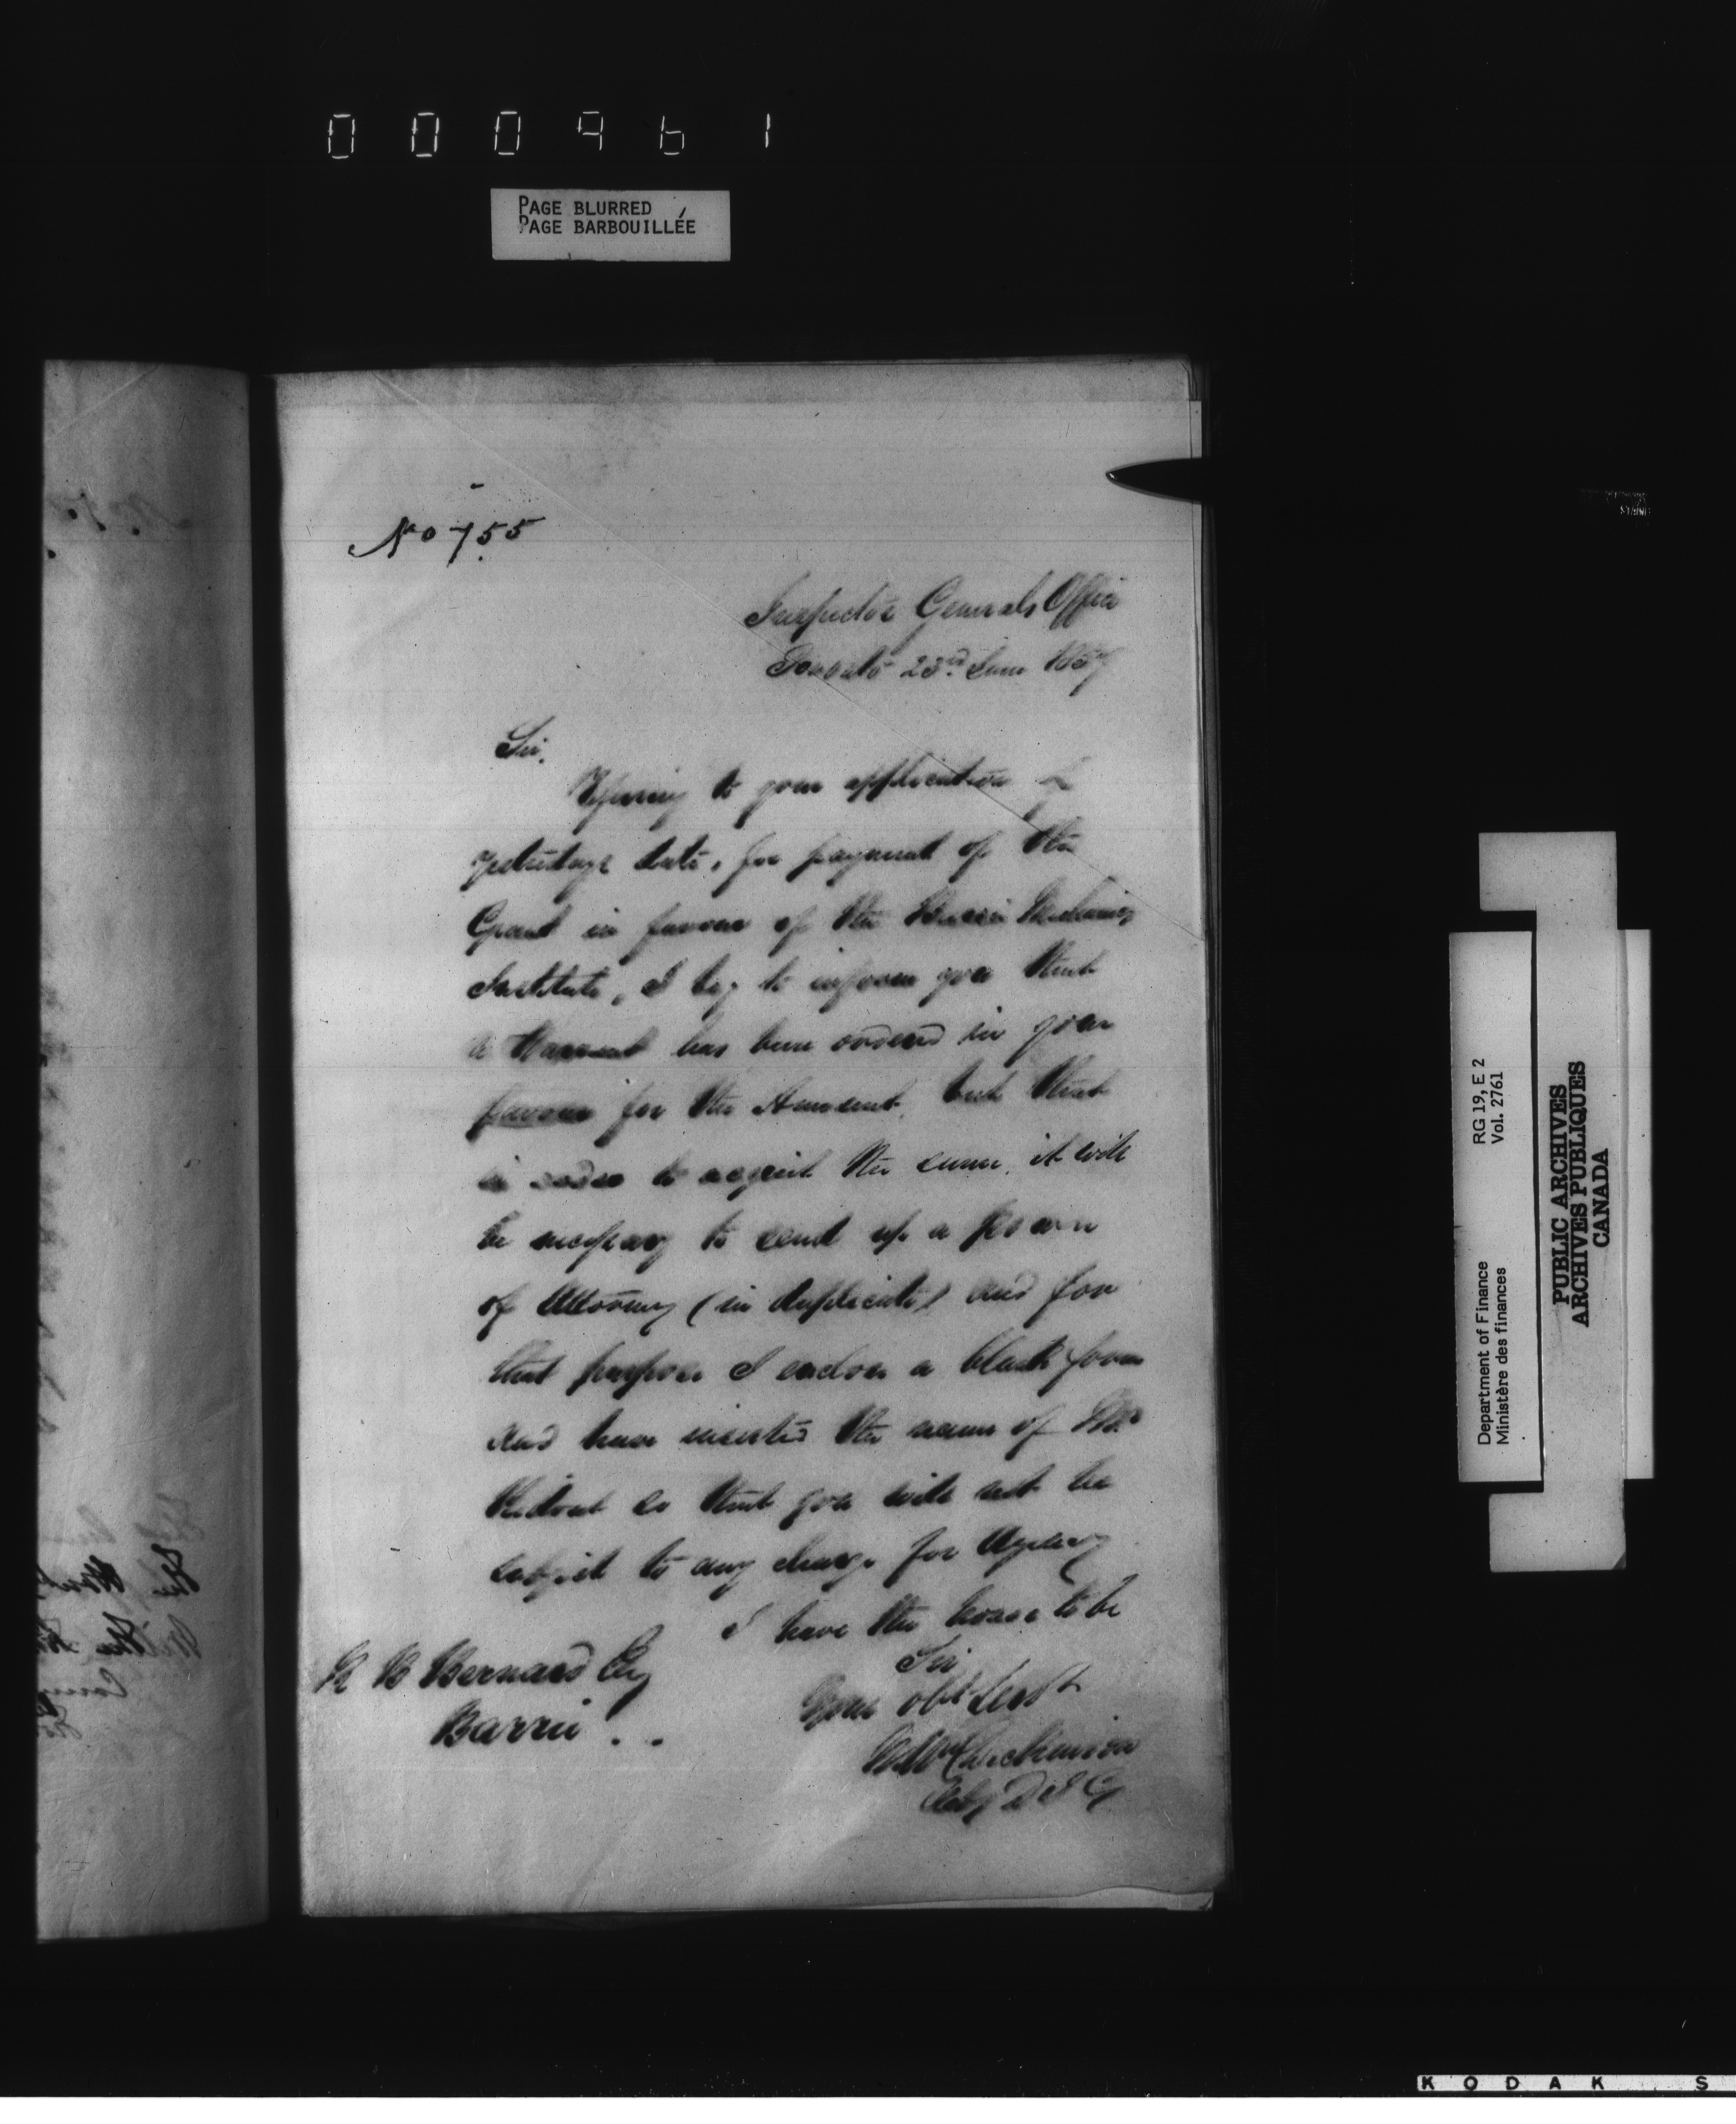 000961
PAGE BLURRED
PAGE BARBOUILLÉE
No 755
Inspector Generals Office
Toronto 23rd June 1857
Sir,
Refering to your application of
yesterdays date, for payment of the
Grant in favour of the Barrie Mechanics
Institute, I beg to inform you that
a Warrant has been ordered in your
favour for the Amount, but that
in order to acquit the same, it will
be necessary to send up a power
of Attorney (in duplicate) and for
that purpose I enclose a blank form
and have inserted the name of Mr
Ridout so that you will not be
subject to any charge for Agency
I have the honor to be
Sir
Your obt Servt
Wm Dickinson
Actg D I G
H B Bernard Esq
Barrie . .
Department of Finance RG 19, E 2
Ministère des finances Vol. 2761
PUBLIC ARCHIVES
ARCHIVES PUBLIQUES
CANADA
KODAK S